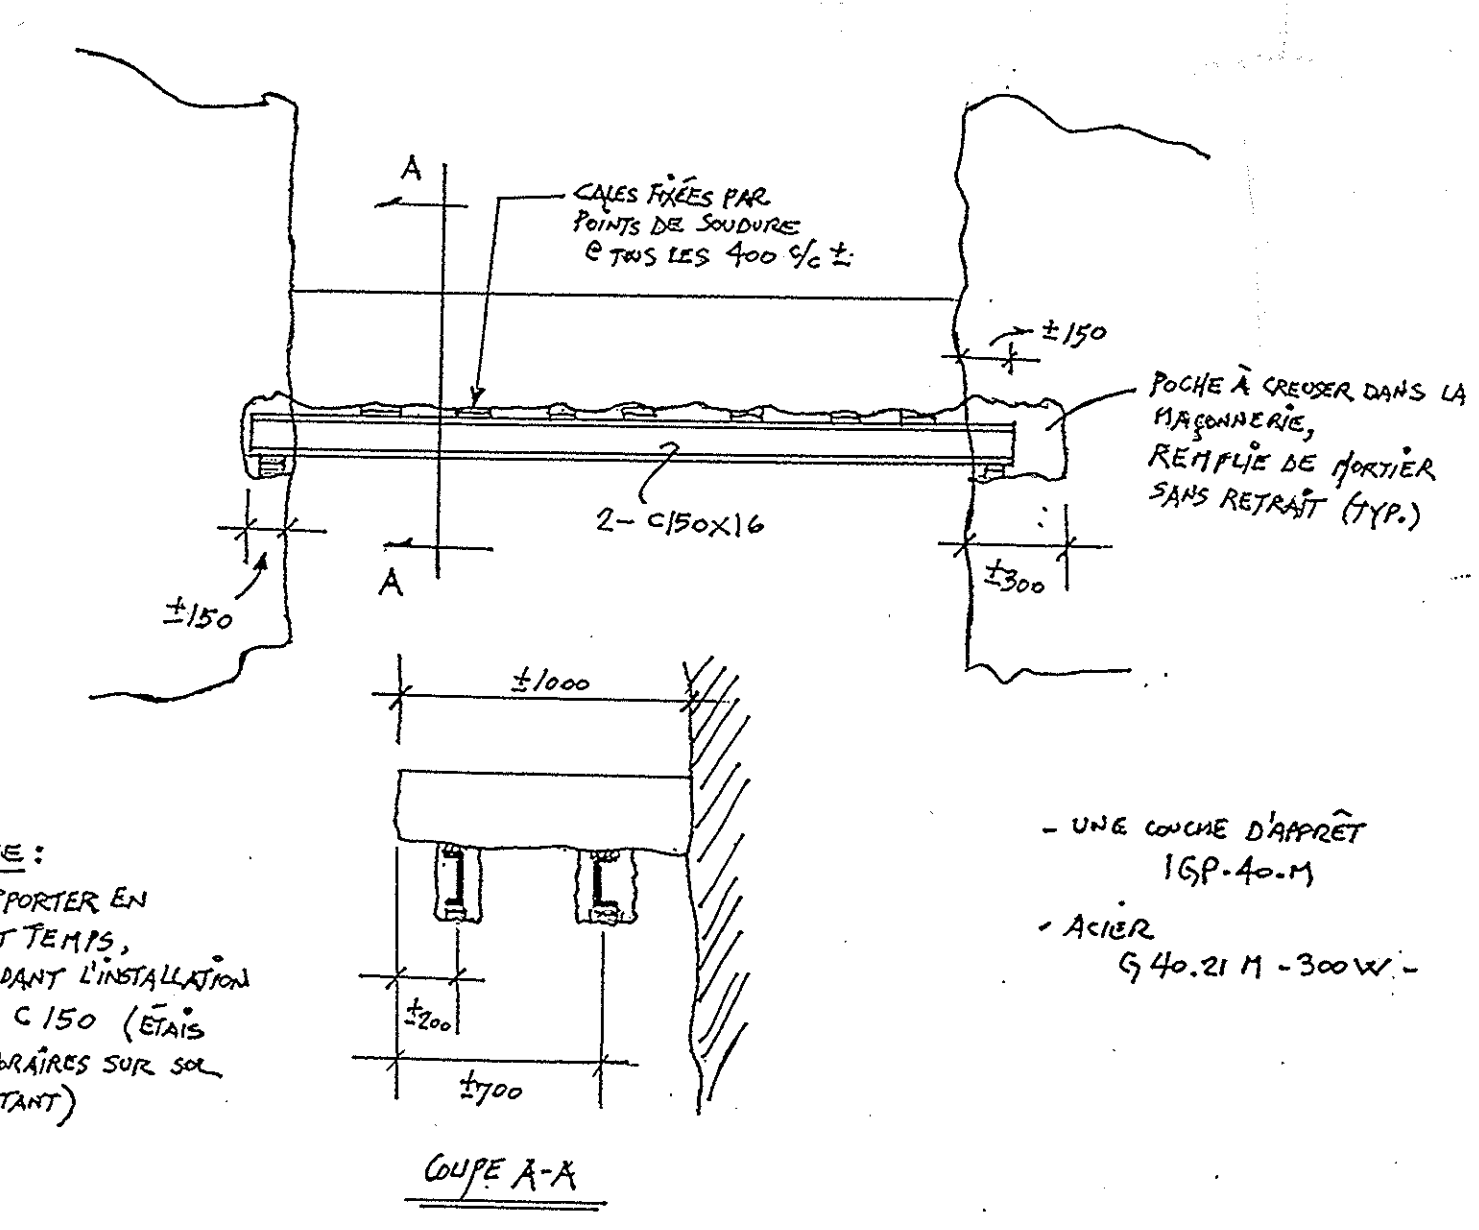 A
CALES FIXÉES PAR
POINTS DE SOUDURE
@ TOUS LES 400 c/c ±
±150
POCHE À CREUSER DANS LA
MAÇONNERIE,
REMPLIE DE MORTIER
SANS RETRAIT (TYP.)
2- C150X16
A
±150
±300
±1000
E:
PORTER EN
T TEMPS,
DANT L'INSTALLATION
C 150 (ÉTAIS
ORAIRES SUR SOL
TANT)
- UNE COUCHE D'APPRÊT
1GP.40.M
- ACIER
G40.21 M -300W-
±200
±700
COUPE A-A